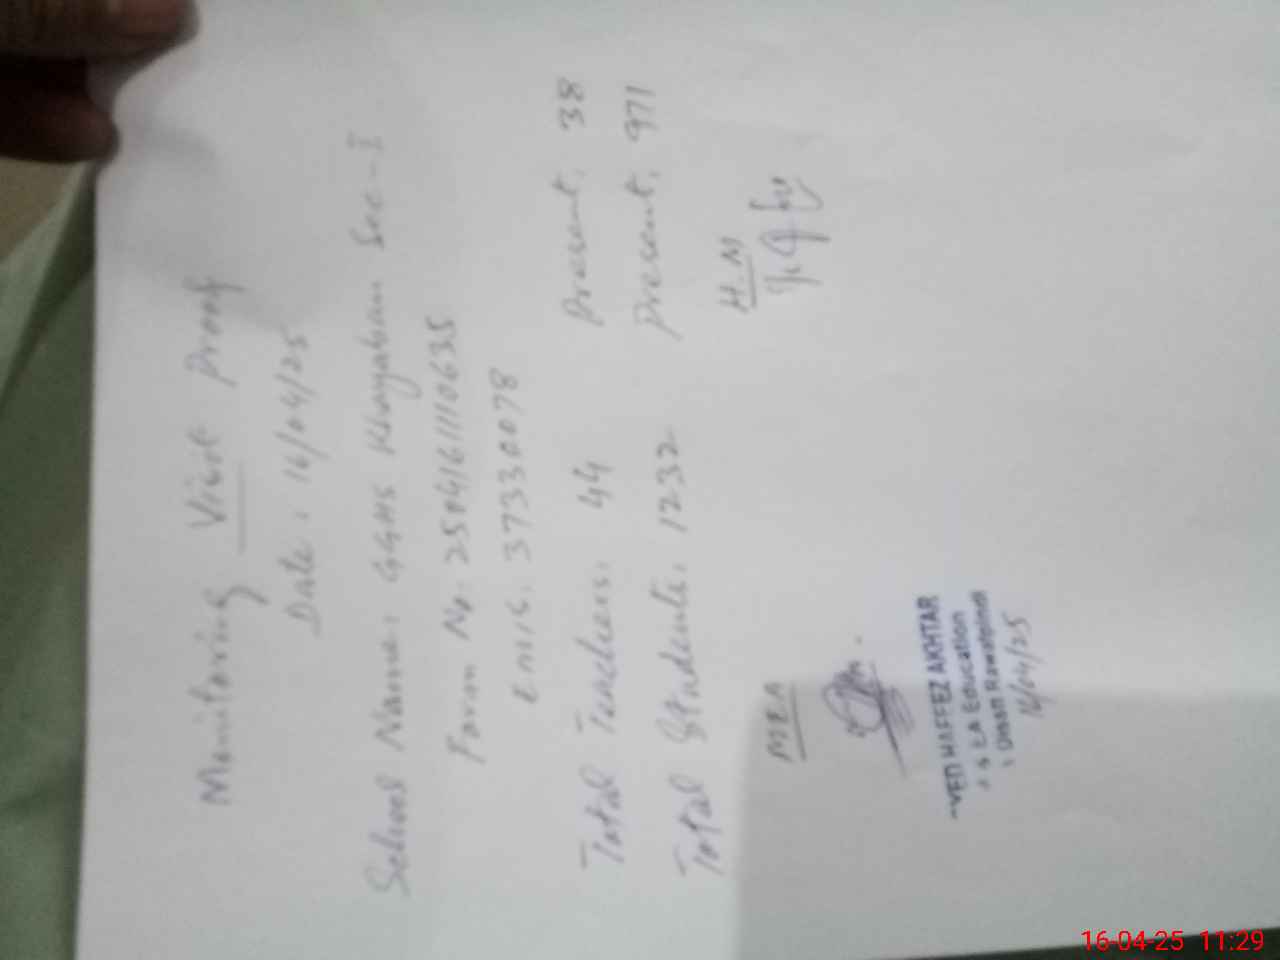 Monitoring Visit Proof
Date: 16/04/25
School Name: GGHS Khayaban Sec-I
Form No: 2504161110635
EMIS: 37330078
Total Teachers: 44 Present: 38
Total Students: 1232 Present: 971
MEA
H.M
HAFFEZ AKHTAR
Education
Rawalpindi
16/04/25
16-04-25 11:29